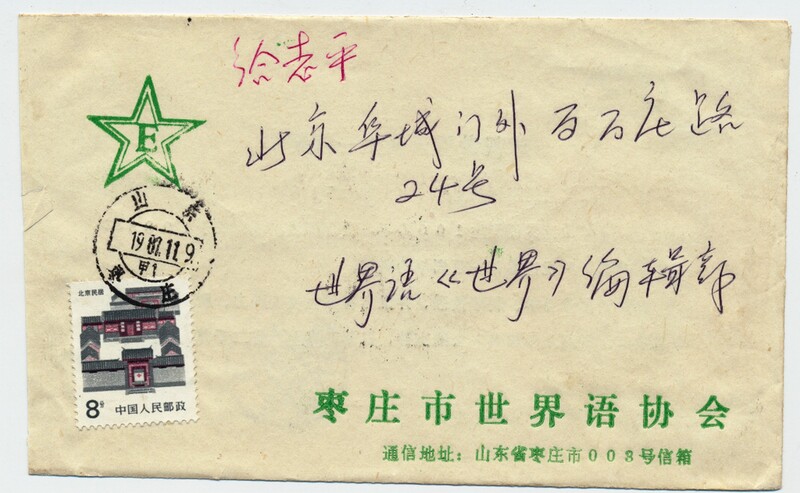 给志平
E
北京阜城门外百万庄路
24号
山东
1987.11.9
甲1
枣庄
世界语《世界》编辑部
北京民居
8分 中国人民邮政
枣庄市世界语协会
通信地址：山东省枣庄市008号信箱